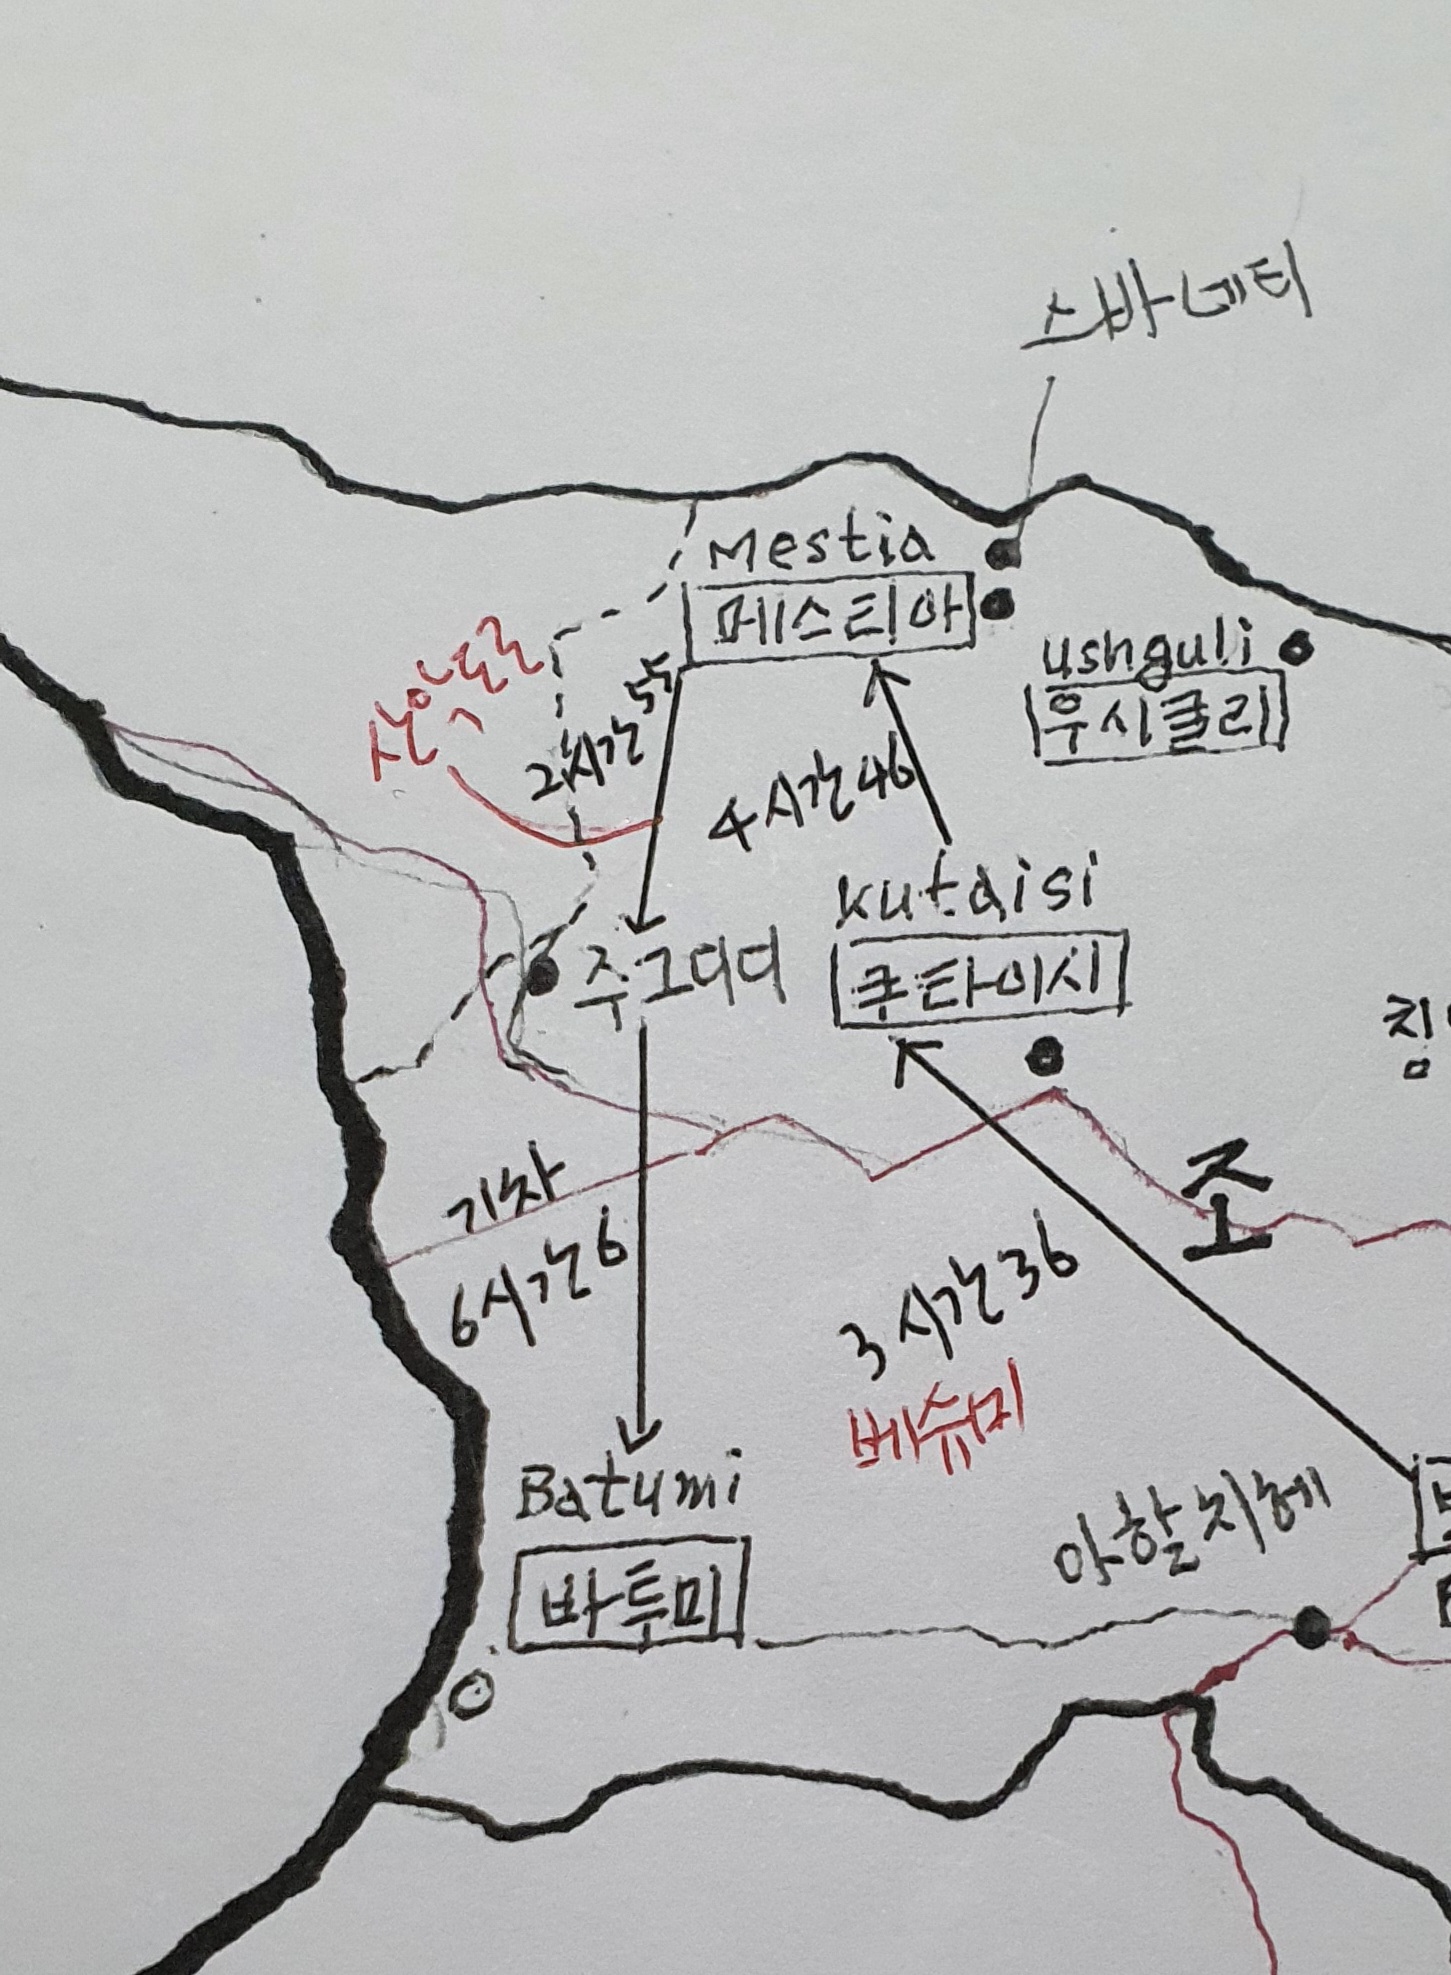 스바네티
Mestia
메스티아
ushguli
우시굴리
2시간 55
4시간46
kutaisi
쿠타이시
주그디디
조
기차
6시간6
3시간36
베슈미
Batumi
바투미
아할치헤